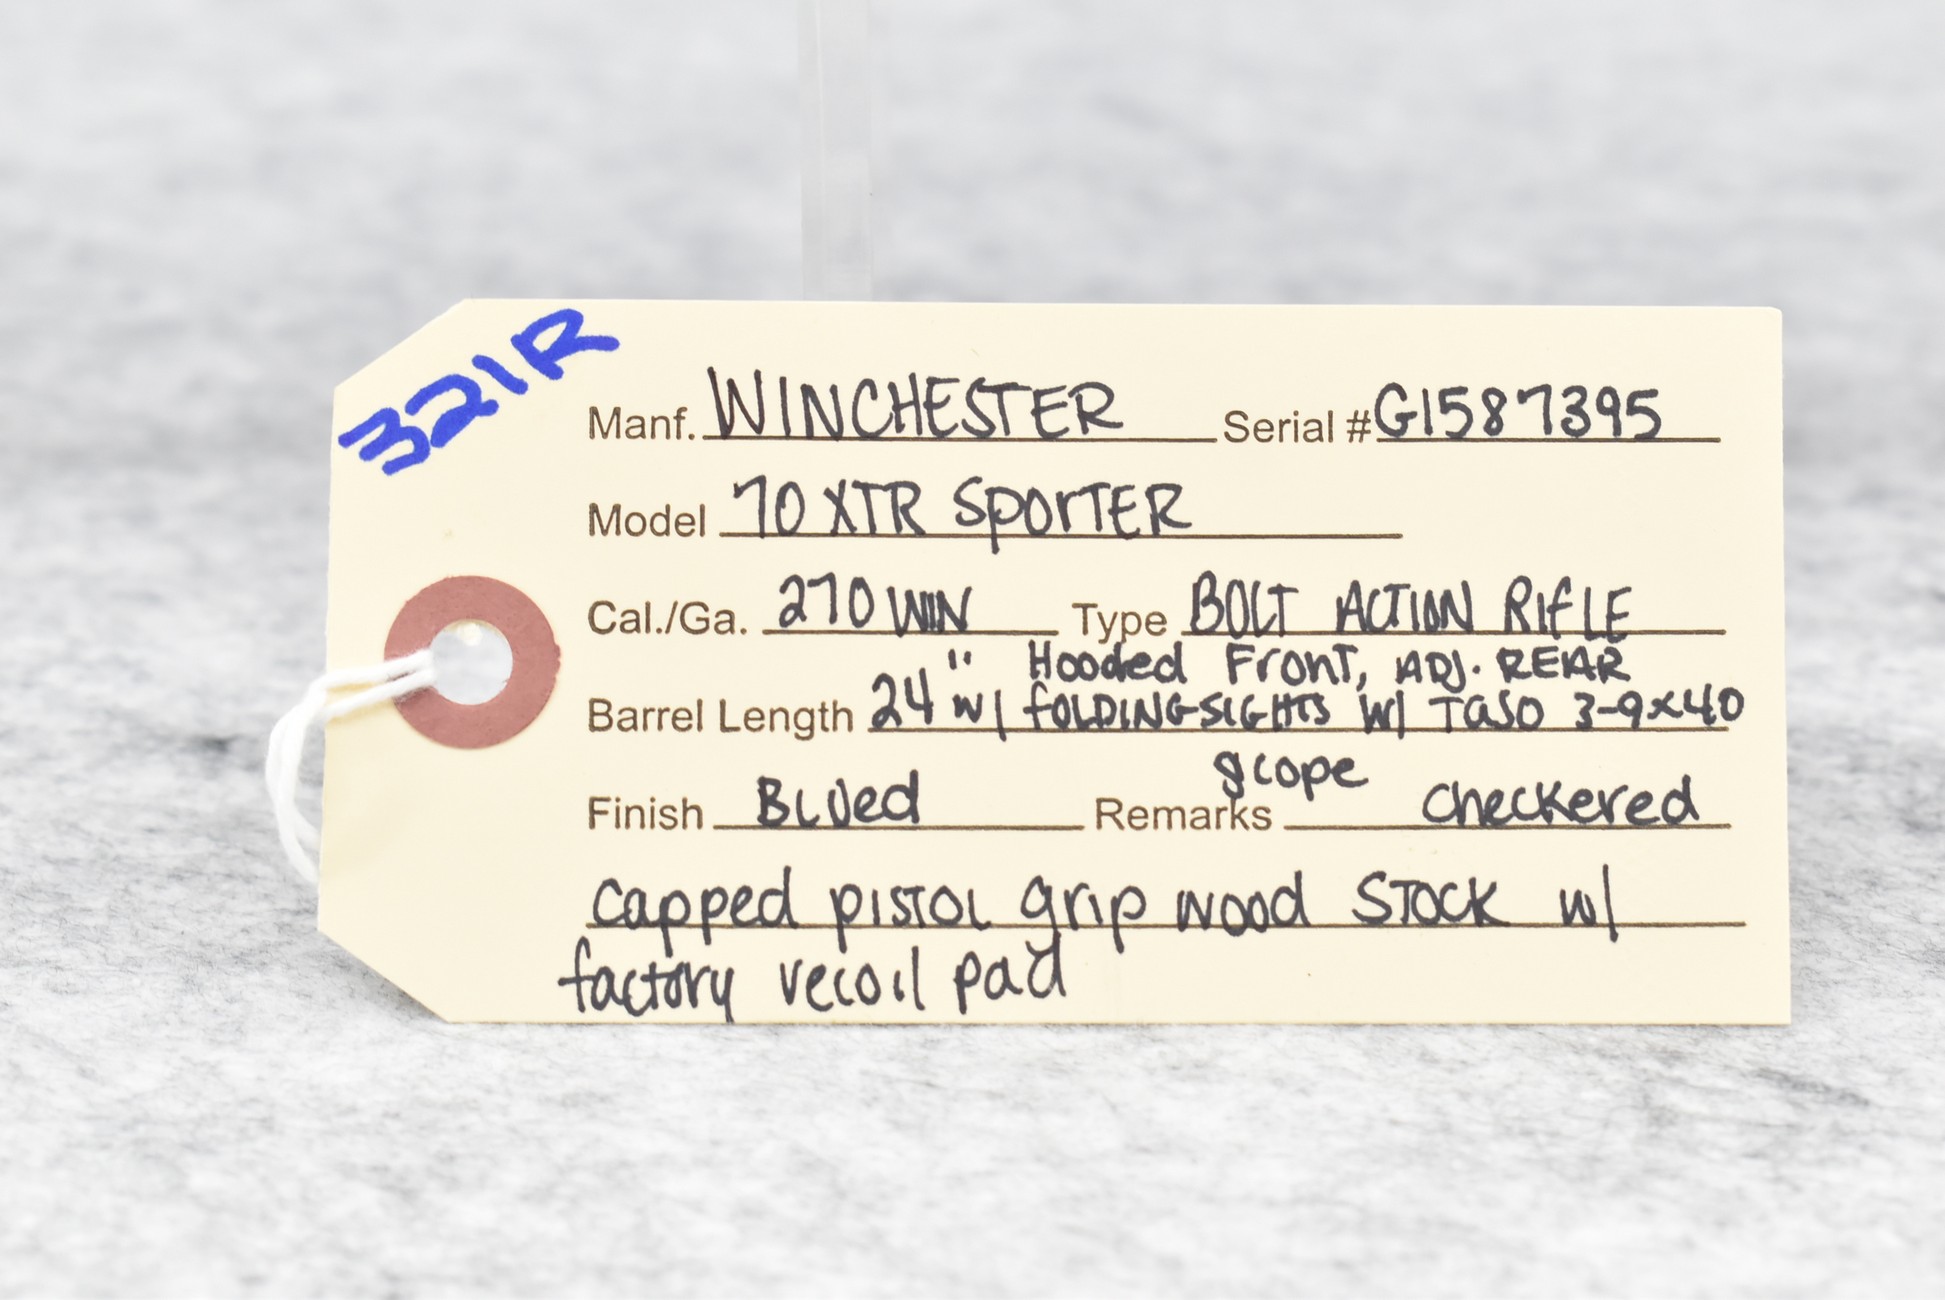 321R
Manf. WINCHESTER Serial # G1587395
Model 70 XTR SPORTER
Cal./Ga. 270 WIN Type BOLT ACTION RIFLE
Hooded Front, ADJ. REAR
Barrel Length 24" w/ FOLDING SIGHTS w/ TASO 3-9x40
scope
Finish BLUed Remarks checkered
capped PISTOL grip wood STOCK w/
factory recoil pad